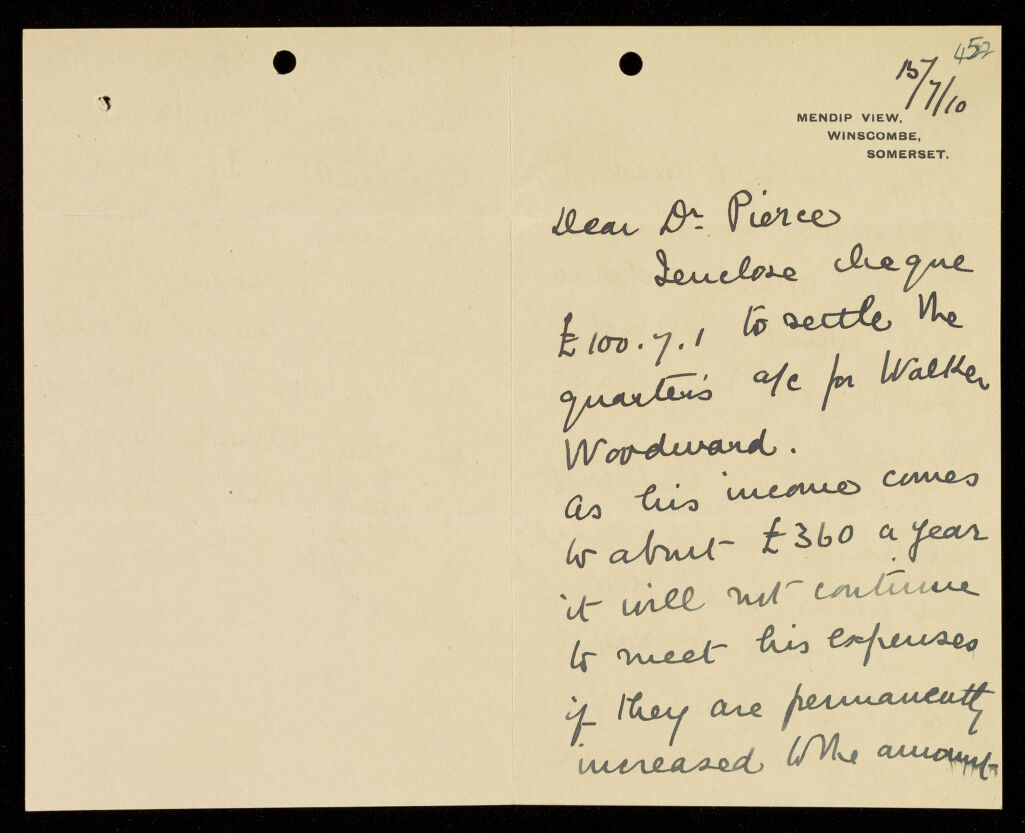 452
15/7/10
MENDIP VIEW,
WINSCOMBE,
SOMERSET.
Dear Dr. Pierce
I enclose cheque
£100.7.1 to settle the
quarter's a/c for Walker
Woodward.
As his income comes
to about £360 a year
it will not continue
to meet his expenses
if they are permanently
increased to the amount